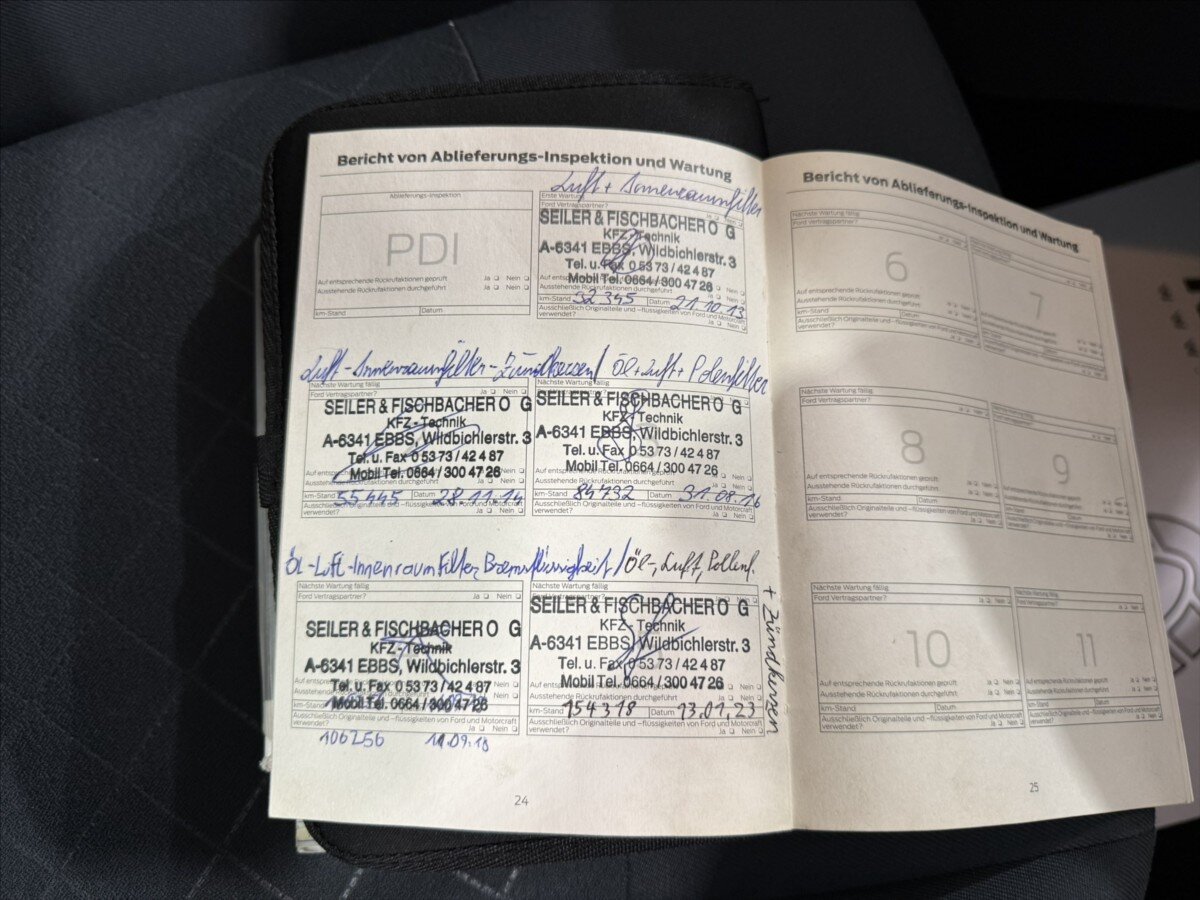 Bericht von Ablieferungs-Inspektion und Wartung
Luft + Innenraumfilter
Ablieferungs-Inspektion
PDI
Auf entsprechende Rückrufaktionen geprüft Ja Nein
Ausstehende Rückrufaktionen durchgeführt Ja Nein
km-Stand Datum
Erste Wartung
Ford Vertragspartner? Ja Nein
SEILER & FISCHBACHER O G
KFZ-Technik
A-6341 EBBS, Wildbichlerstr. 3
Tel. u. Fax 0 53 73 / 42 4 87
Mobil Tel. 0664 / 300 47 26
Ausstehende Rückrufaktionen durchgeführt Ja Nein
km-Stand 52345 Datum 21.10.13
Ausschließlich Originalteile und -flüssigkeiten von Ford und Motorcraft
verwendet? Ja Nein
Luft-Innenraumfilter-Zündkerzen / Öl+Luft+Polenfilter
Nächste Wartung fällig
Ford Vertragspartner? Ja Nein
SEILER & FISCHBACHER O G
KFZ-Technik
A-6341 EBBS, Wildbichlerstr. 3
Tel. u. Fax 0 53 73 / 42 4 87
Mobil Tel. 0664 / 300 47 26
Ausstehende Rückrufaktionen durchgeführt Ja Nein
km-Stand 55445 Datum 28.11.14
Ausschließlich Originalteile und -flüssigkeiten von Ford und Motorcraft
verwendet? Ja Nein
Nächste Wartung fällig
SEILER & FISCHBACHER O G
KFZ-Technik
A-6341 EBBS, Wildbichlerstr. 3
Tel. u. Fax 0 53 73 / 42 4 87
Mobil Tel. 0664 / 300 47 26
Ausstehende Rückrufaktionen durchgeführt Ja Nein
km-Stand 84732 Datum 31.08.16
Ausschließlich Originalteile und -flüssigkeiten von Ford und Motorcraft
verwendet? Ja Nein
Öl-Luft-Innenraum Filter, Bremsflüssigkeit / Öl-, Luft, Pollenf.
+ Zündkerzen
Nächste Wartung fällig
Ford Vertragspartner? Ja Nein
SEILER & FISCHBACHER O G
KFZ-Technik
A-6341 EBBS, Wildbichlerstr. 3
Tel. u. Fax 0 53 73 / 42 4 87
Mobil Tel. 0664 / 300 47 26
Ausschließlich Originalteile und -flüssigkeiten von Ford und Motorcraft
verwendet? Ja Nein
106256 11.09.18
Nächste Wartung fällig
Ford Vertragspartner? Ja Nein
SEILER & FISCHBACHER O G
KFZ-Technik
A-6341 EBBS, Wildbichlerstr. 3
Tel. u. Fax 0 53 73 / 42 4 87
Mobil Tel. 0664 / 300 47 26
Ausstehende Rückrufaktionen durchgeführt Ja Nein
km-Stand 154318 Datum 13.01.23
Ausschließlich Originalteile und -flüssigkeiten von Ford und Motorcraft
verwendet? Ja Nein
24
Bericht von Ablieferungs-Inspektion und Wartung
Nächste Wartung fällig
Ford Vertragspartner? Ja Nein
6
Auf entsprechende Rückrufaktionen geprüft
Ausstehende Rückrufaktionen durchgeführt
km-Stand Datum
Ausschließlich Originalteile und -flüssigkeiten von Ford und Motorcraft
verwendet?
7
Nächste Wartung fällig
Ford Vertragspartner? Ja Nein
8
Auf entsprechende Rückrufaktionen geprüft
Ausstehende Rückrufaktionen durchgeführt
km-Stand Datum
Ausschließlich Originalteile und -flüssigkeiten von Ford und Motorcraft
verwendet?
9
Nächste Wartung fällig
Ford Vertragspartner? Ja Nein
10
Auf entsprechende Rückrufaktionen geprüft
Ausstehende Rückrufaktionen durchgeführt
km-Stand Datum
Ausschließlich Originalteile und -flüssigkeiten von Ford und Motorcraft
verwendet?
11
25